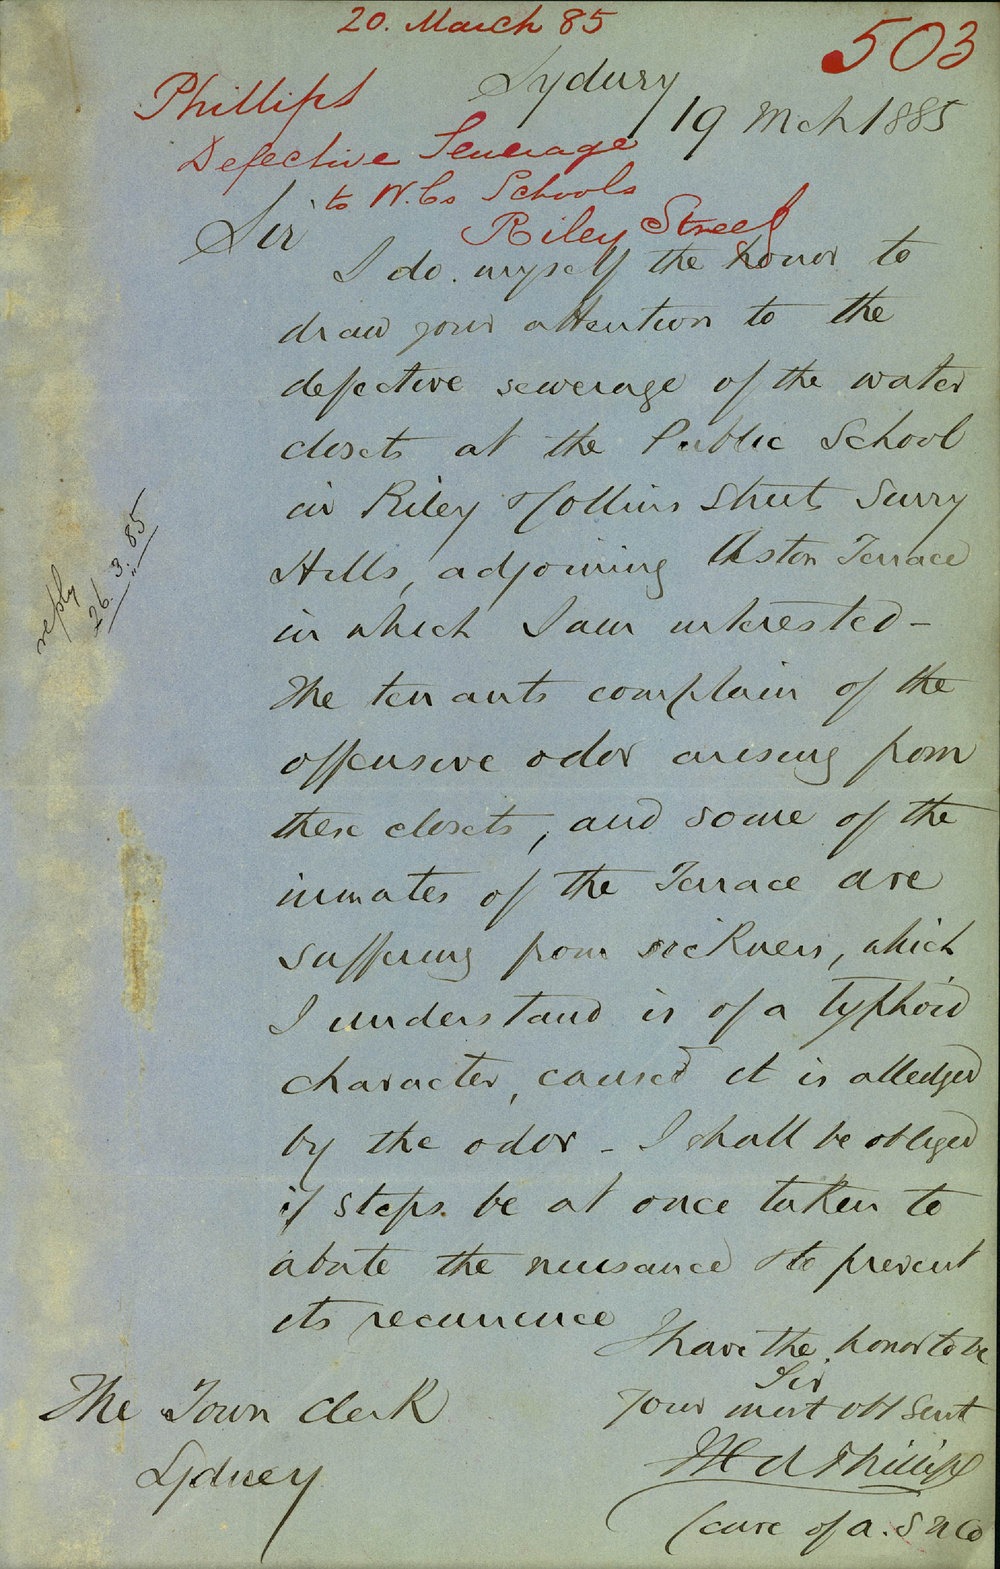 20. March 85
503
Phillips
Sydney
19 Mch 1885
Defective Sewerage
to W.Cs Schools
Riley Street
Sir
I do myself the honor to
draw your attention to the
defective sewerage of the water
closets at the Public School
in Riley & Collins Street Surry
Hills, adjoining Aston Terrace
in which I am interested -
The tenants complain of the
offensive odor arising from
these closets, and some of the
inmates of the Terrace are
suffering from sickness, which
I understand is of a Typhoid
character, caused it is alledged
by the odor - I shall be obliged
if steps be at once taken to
abate the nuisance & to prevent
its recurrence
I have the honor to be
Sir
Your most obt Servt
Phillips
(care of A. S N Co
The Town Clerk
Sydney
reply
26.3.85